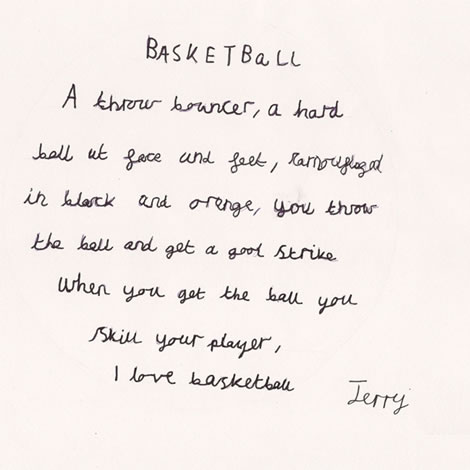 BASKETBaLL
A throw bouncer, a hard
ball at face and feet, ramouflagd
in black and orange, you throw
the ball and get a gool strike
When you get the ball you
skill your player,
I love basketball
Jerry